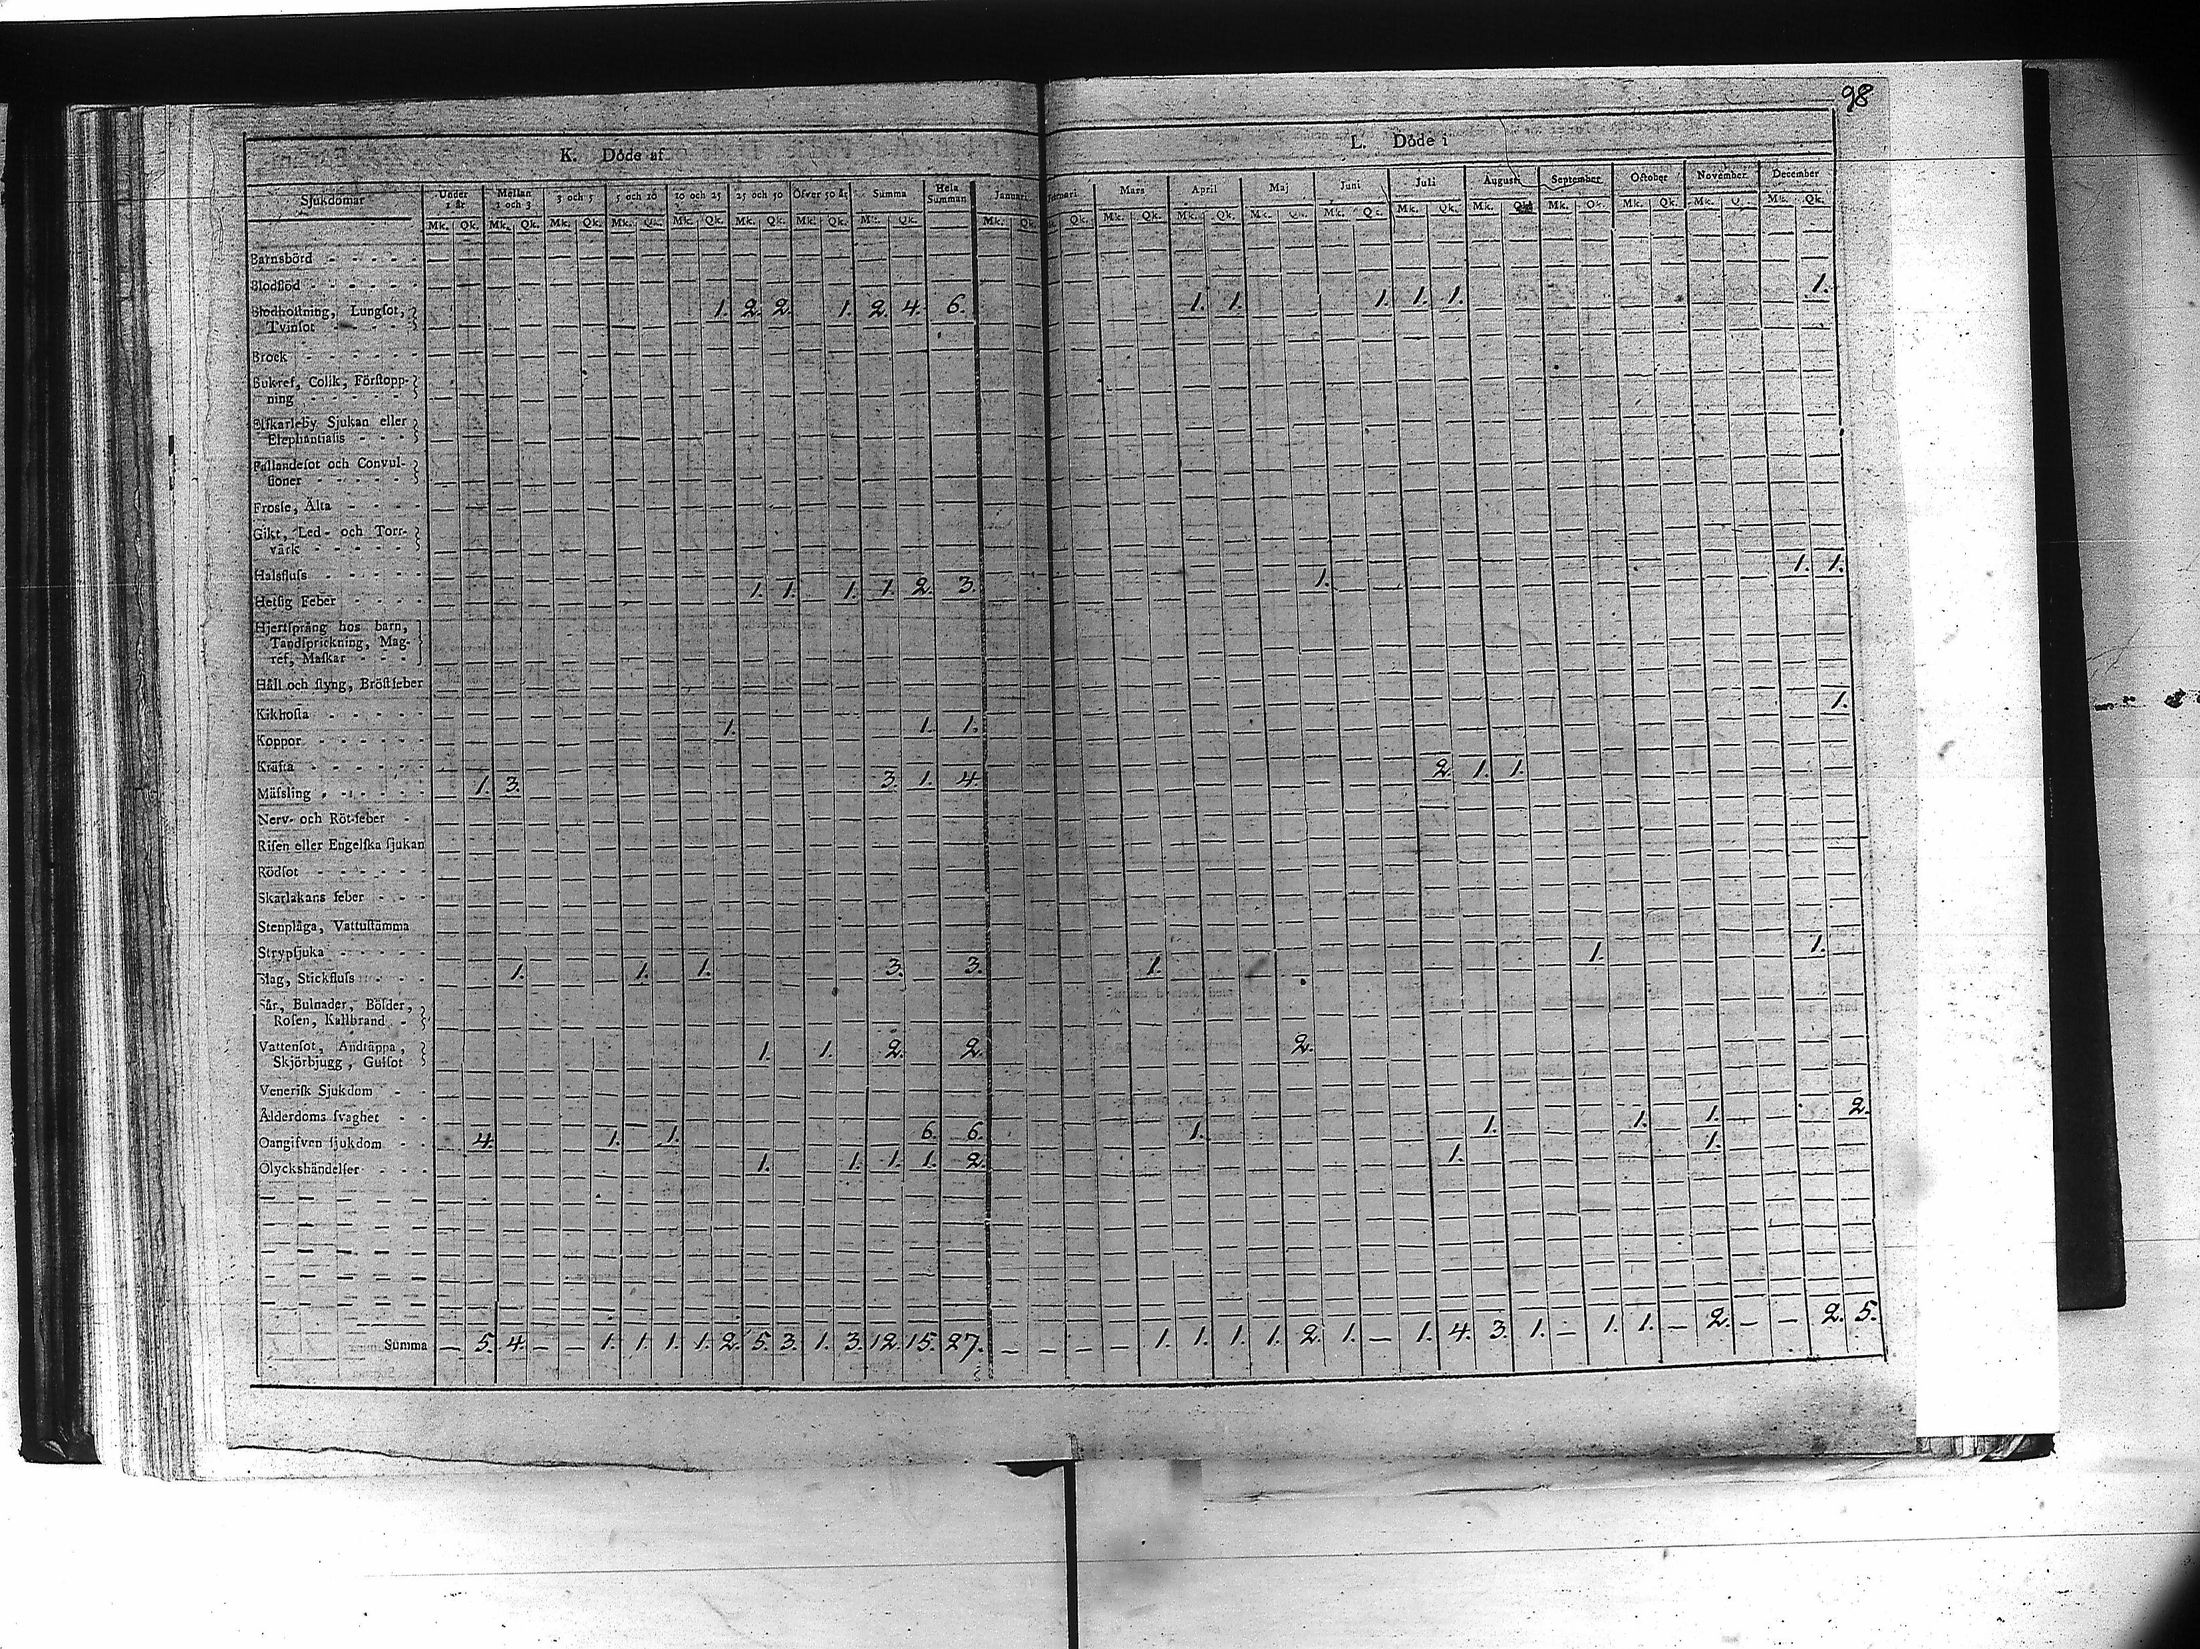 98
K. Döde af
L. Döde i
Sjukdomar Under 1 år Mellan 1 och 3 3 och 5 5 och 10 10 och 25 25 och 50 Öfver 50 år Summa Hela Summan Januari Mars April Maj Juni Juli Augusti September October November December
Mk. Qk. Mk. Qk. Mk. Qk. Mk. Qk. Mk. Qk. Mk. Qk. Mk. Qk. Mk. Qk. Mk. Qk. Qk. Mk. Qk. Mk. Qk. Mk. Qk. Mk. Qk. Mk. Qk. Mk. Qk. Mk. Qk. Mk. Qk. Mk. Q. Mk. Qk.
Barnsbörd
Blodflöd
Blodhoſtning, Lungſot, 1. 2. 2. 1. 2. 4. 6. 1. 1. 1. 1. 1. 1.
Tvinſot
Brock
Bukref, Colik, Förſtopp-
ning
Elfkarleby Sjukan eller
Elephantiaſis
Fallandeſot och Convul-
ſioner
Frosſe, Älta
Gikt, Led- och Torr-
värk
Halsfluſs
Hetſig Feber 1. 1. 1. 1. 2. 3. 1. 1. 1.
Hjertſpräng hos barn,
Tandſprickning, Mag-
ref, Maſkar
Håll och ſtyng, Bröſtfeber
Kikhoſta
Koppor 1. 1. 1. 1.
Kräfta
Mäſsling 1. 3. 3. 1. 4. 2. 1. 1.
Nerv- och Röt-feber
Riſen eller Engelſka ſjukan
Rödſot
Skarlakans feber
Stenplåga, Vattuſtämma
Strypſjuka
Slag, Stickfluſs 1. 1. 1. 3. 3. 1. 1. 1.
Sår, Bulnader, Bölder,
Roſen, Kallbrand
Vattenſot, Andtäppa, 1. 1. 2. 2. 2.
Skjörbjugg, Gulſot
Veneriſk Sjukdom
Ålderdoms ſvaghet
Oangifven ſjukdom 4. 1. 1. 6. 6. 1. 1. 1. 1. 2.
Olyckshändelſer 1. 1. 1. 1. 2. 1. 1.
Summa — 5. 4. — — 1. 1. 1. 1. 2. 5. 3. 1. 3. 12. 15. 27. — — — — 1. 1. 1. 1. 2. 1. — 1. 4. 3. 1. — 1. 1. — 2. — — 2. 5.